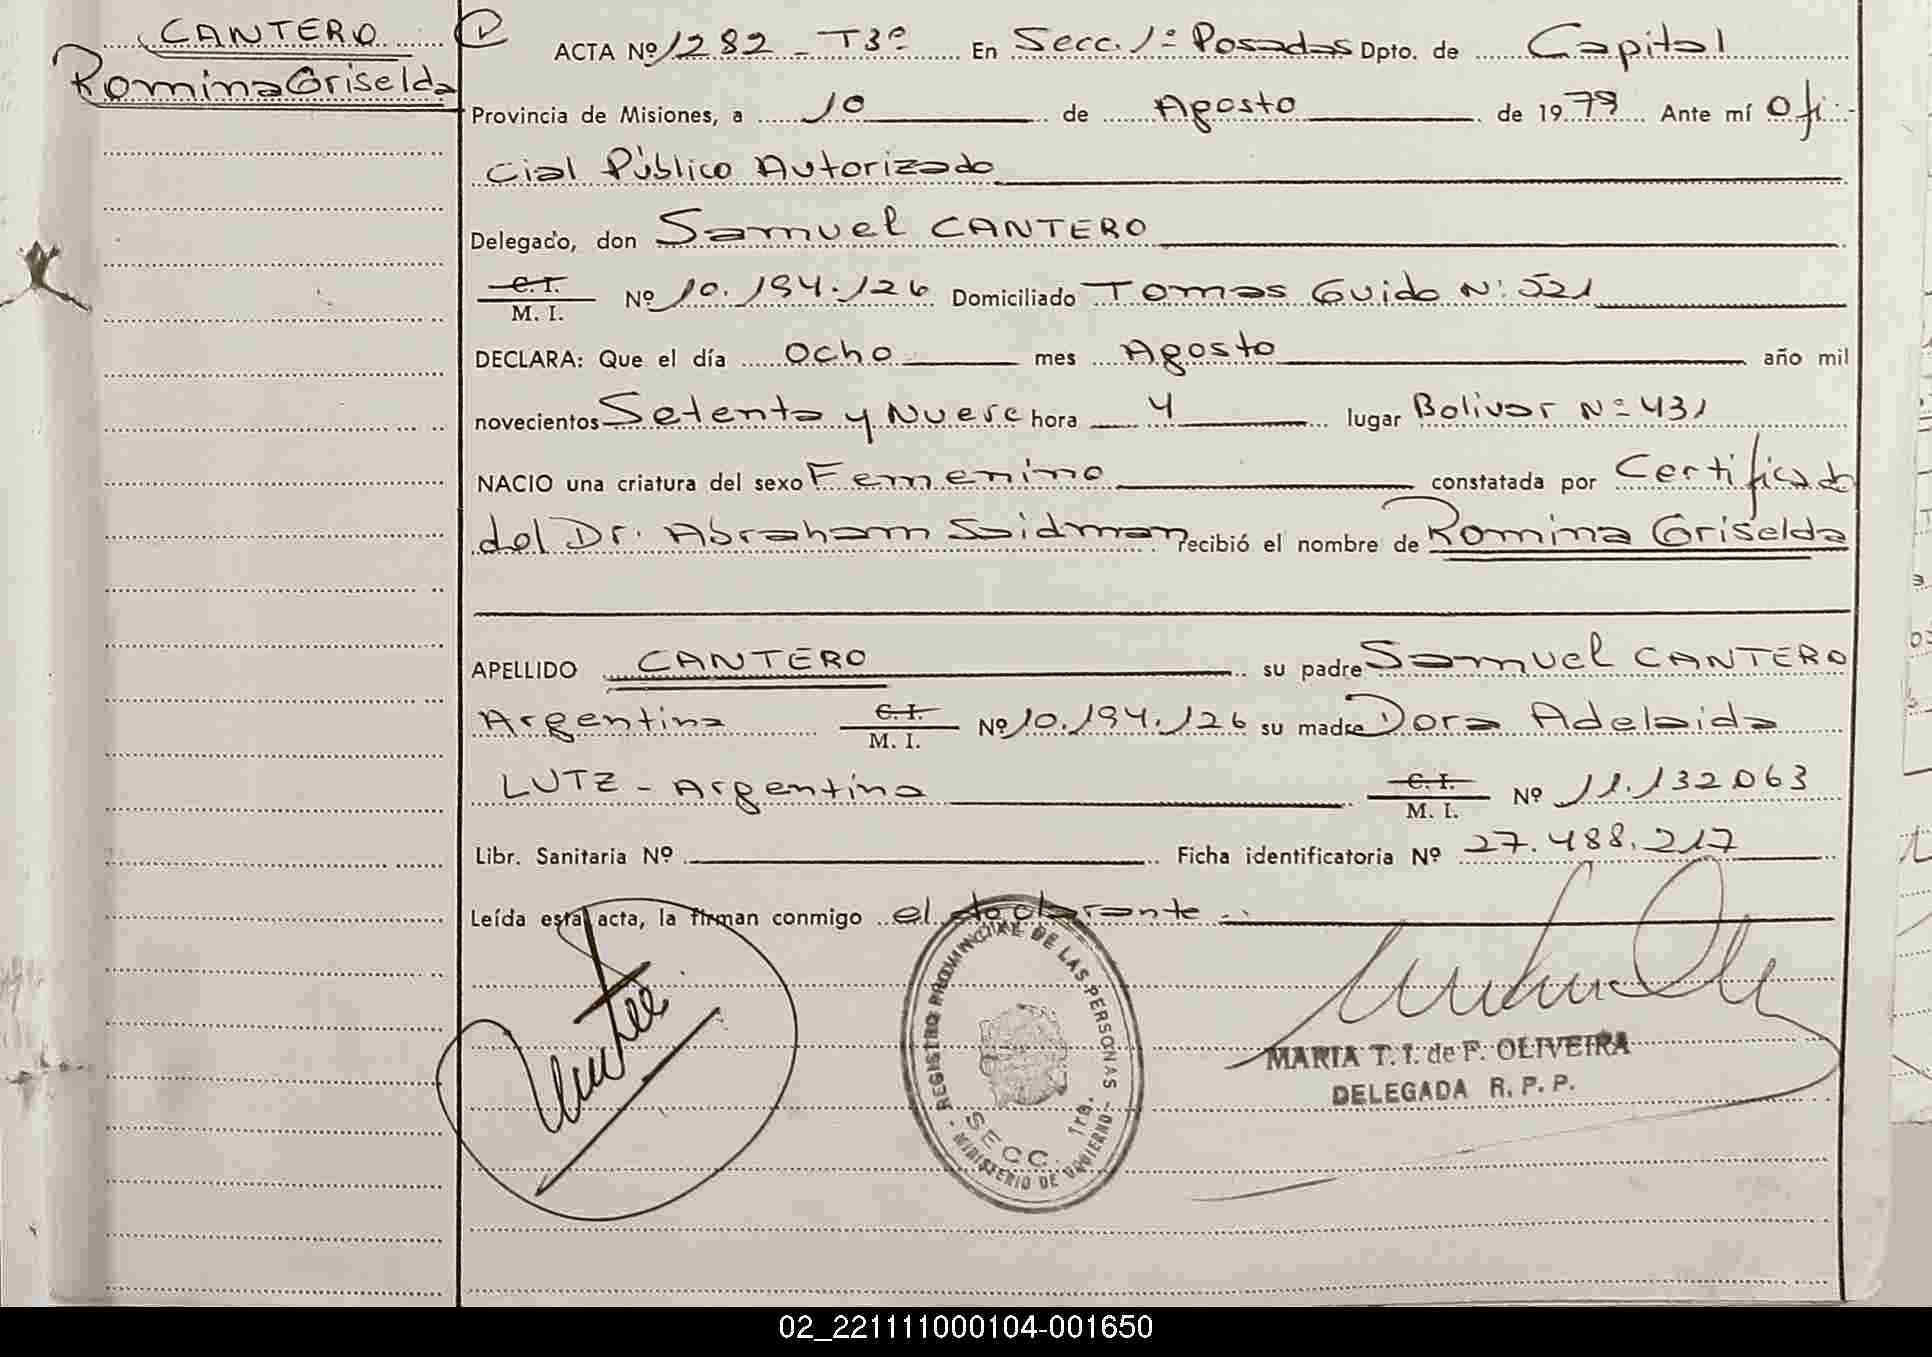 CANTERO
Romina Griselda
ACTA Nº 1282 - T3º En Secc. 1ª Posadas Dpto. de Capital
Provincia de Misiones, a 10 de Agosto de 1979 Ante mí Ofi-
cial Público Autorizado
Delegado, don Samuel CANTERO
C. I.
M. I. Nº 10.194.126 Domiciliado Tomas Guido Nº 521
DECLARA: Que el día Ocho mes Agosto año mil
novecientos Setenta y Nueve hora 4 lugar Bolivar Nº 431
NACIO una criatura del sexo Femenino constatada por Certificado
del Dr. Abraham Saidman recibió el nombre de Romina Griselda
APELLIDO CANTERO su padre Samuel CANTERO
Argentina C. I. M. I. Nº 10.194.126 su madre Dora Adelaida
LUTZ - Argentina C. I. M. I. Nº 11.132.063
Libr. Sanitaria Nº Ficha identificatoria Nº 27.488.217
Leída esta acta, la firman conmigo el declarante -
REGISTRO PROVINCIAL DE LAS PERSONAS
SECC. 1ra.
- MINISTERIO DE GOBIERNO -
MARIA T. I. de F. OLIVEIRA
DELEGADA R. P. P.
02_221111000104-001650